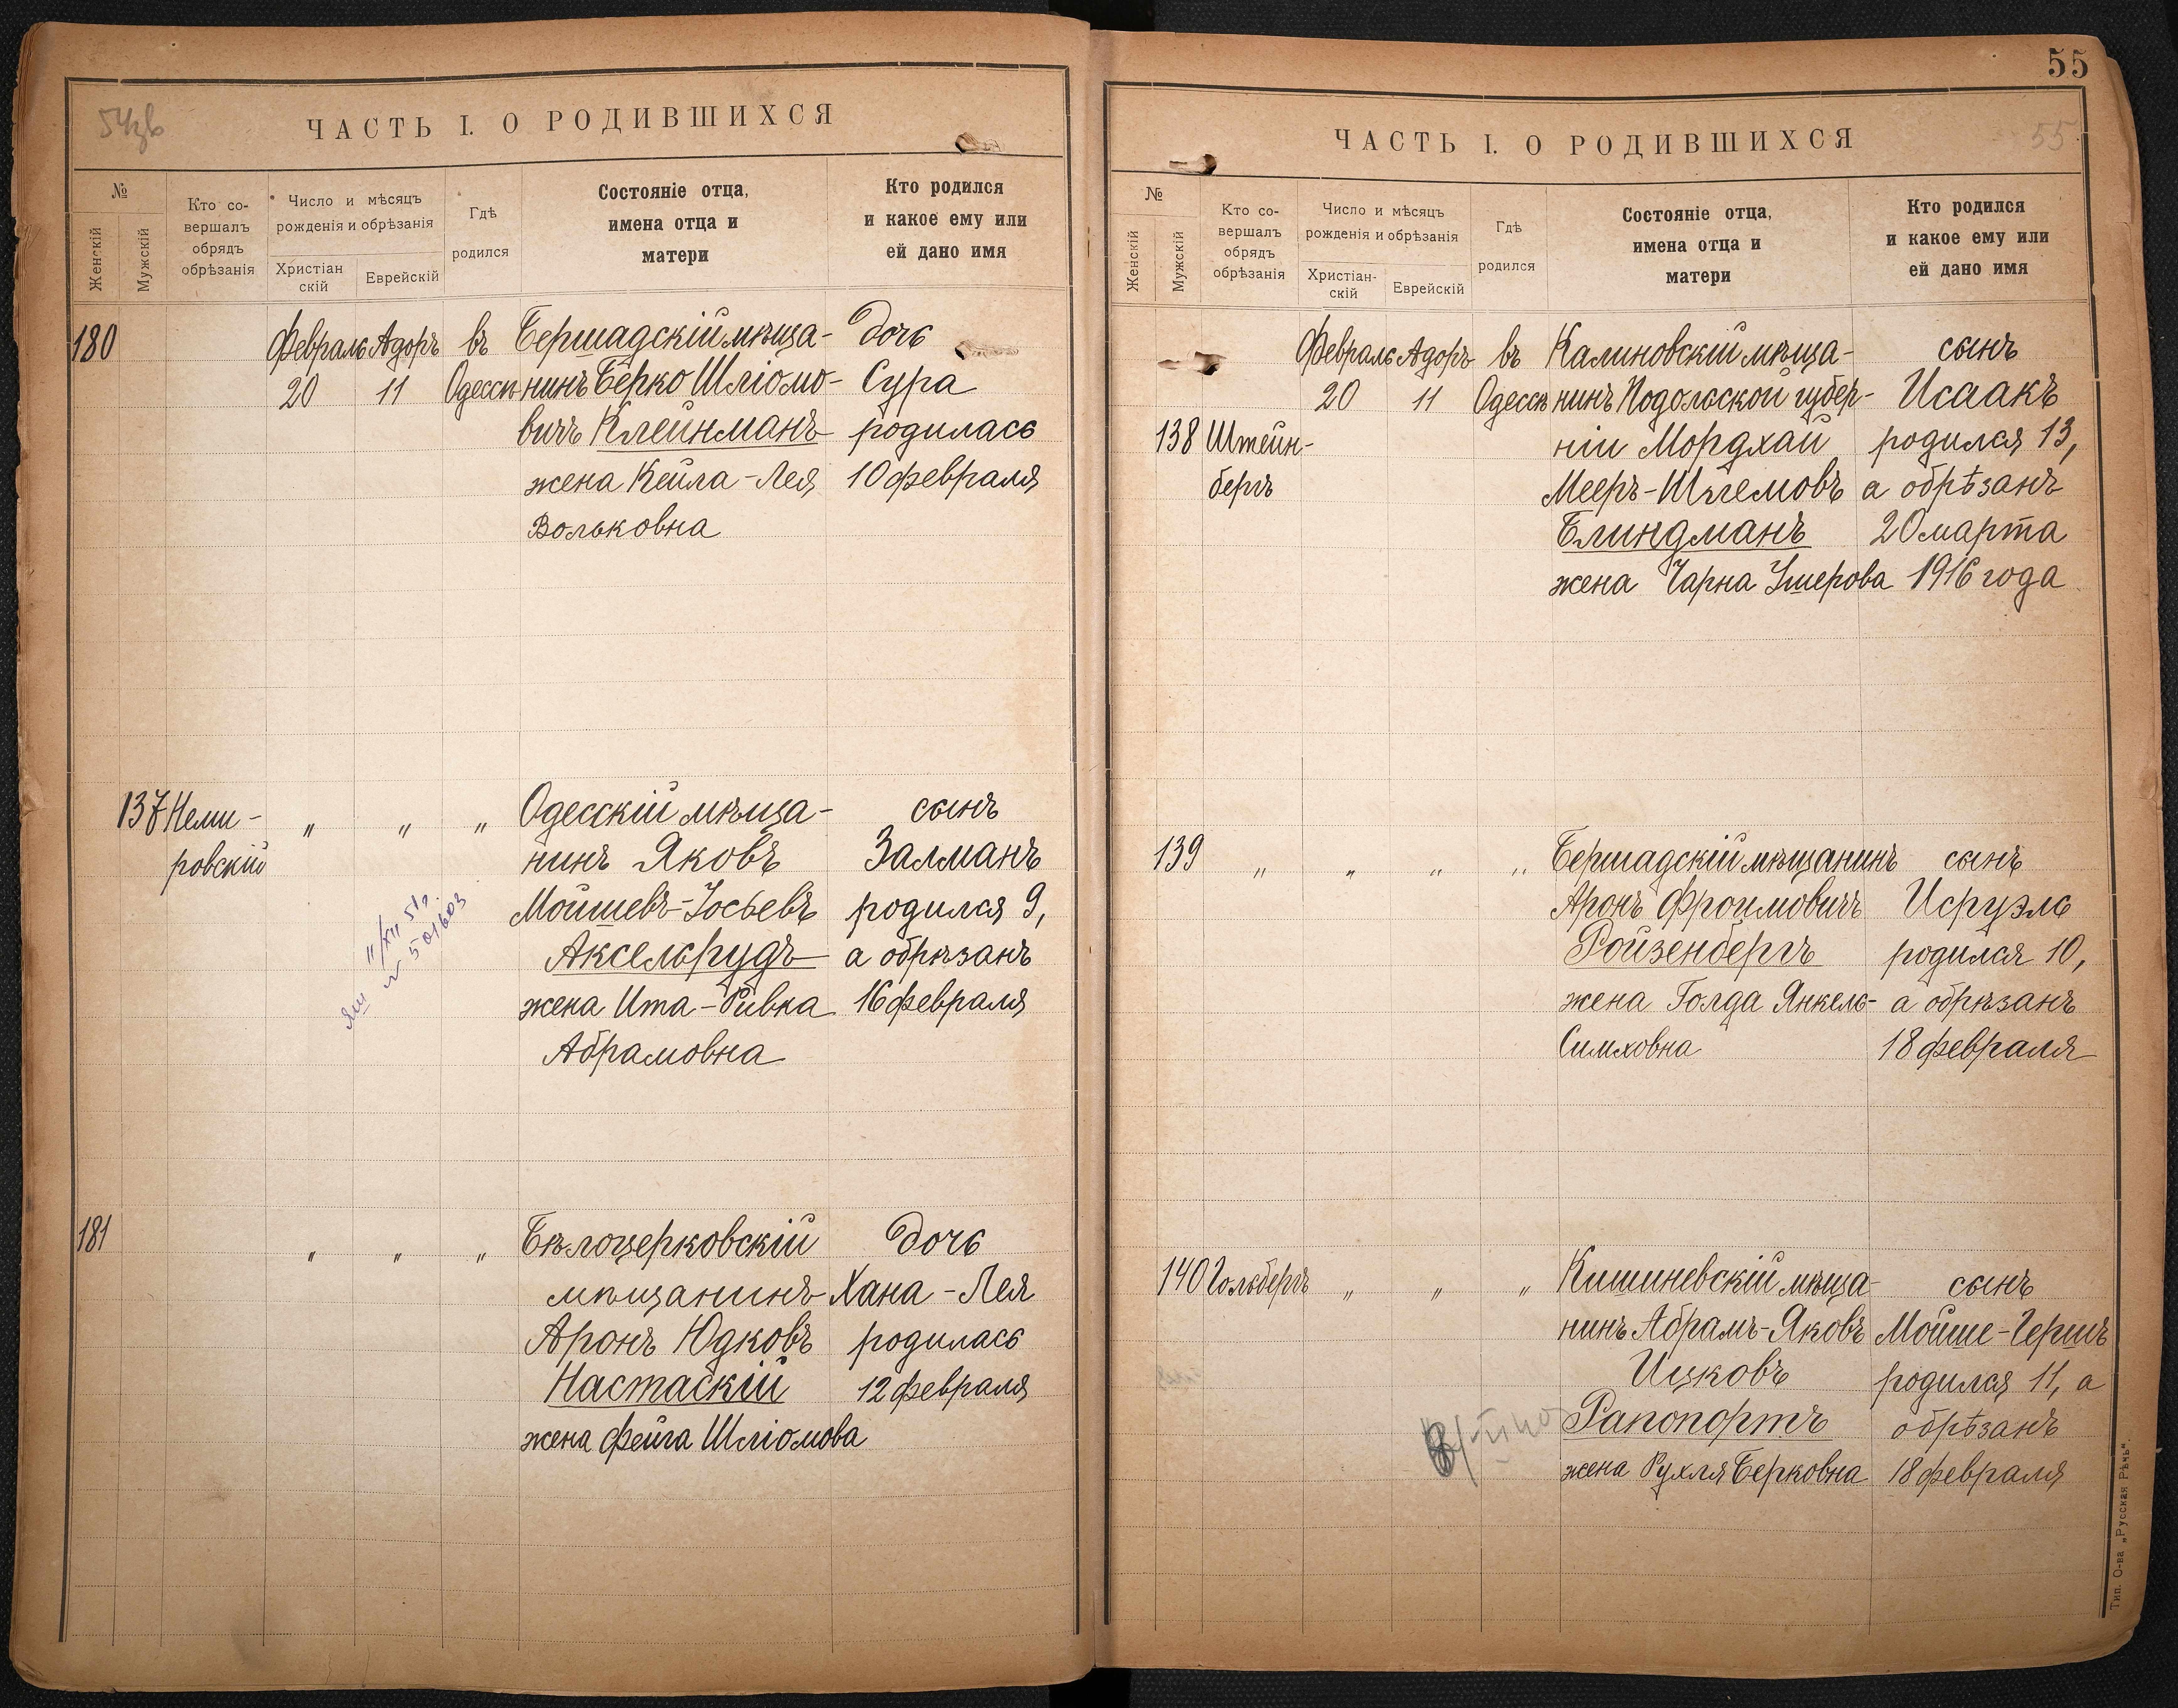 54зв
ЧАСТЬ I. О РОДИВШИХСЯ
№
Женскій
Мужскій
Кто со-
вершалъ
обрядъ
обрѣзанія
Число и мѣсяцъ
рожденія и обрѣзанія
Христіан
скій
Еврейскій
Гдѣ
родился
Состояніе отца,
имена отца и
матери
Кто родился
и какое ему или
ей дано имя
180 Февраль Адоръ въ Бершадскій мѣща- Дочь
20 11 Одессѣ нинъ Берко Шліомо- Сура
вичъ Клейнманъ родилась
жена Кейла-Лея 10 февраля
Вольковна
137 Неми- " " " Одесскій мѣща- сынъ
ровскій нинъ Яковъ Залманъ
Мойшевъ-Іосьевъ родился 9,
Аксельрудъ а обрѣзанъ
жена Ита-Ривка 16 февраля
Абрамовна
501603
181 " " " Бѣлоцерковскій Дочь
мѣщанинъ Хана-Лея
Аронъ Юдковъ родилась
Настаскій 12 февраля
жена Фейга Шліомова
55
ЧАСТЬ I. О РОДИВШИХСЯ
55
№
Женскій
Мужскій
Кто со-
вершалъ
обрядъ
обрѣзанія
Число и мѣсяцъ
рожденія и обрѣзанія
Христіан-
скій
Еврейскій
Гдѣ
родился
Состояніе отца,
имена отца и
матери
Кто родился
и какое ему или
ей дано имя
Февраль Адоръ въ Калиновскій мѣща- сынъ
20 11 Одессѣ нинъ Подольской губер- Исаакъ
138 Штейн- ніи Мордхай родился 13,
бергъ Мееръ- а обрѣзанъ
Блиндманъ 20 марта
жена Чарна Ушерова 1916 года
139 " " " " Бершадскій мѣщанинъ сынъ
Аронъ Фроимовичъ Исруэль
Ройзенбергъ родился 10,
жена Голда Янкель- а обрѣзанъ
Симховна 18 февраля
140 Гольбергъ " " " Кишиневскій мѣща- сынъ
нинъ Абрамъ-Яковъ Мойше-Гершъ
Ицковъ родился 11, а
Рапопортъ обрѣзанъ
жена Рухля Берковна 18 февраля
Тип. О-ва „Русская Рѣчь".